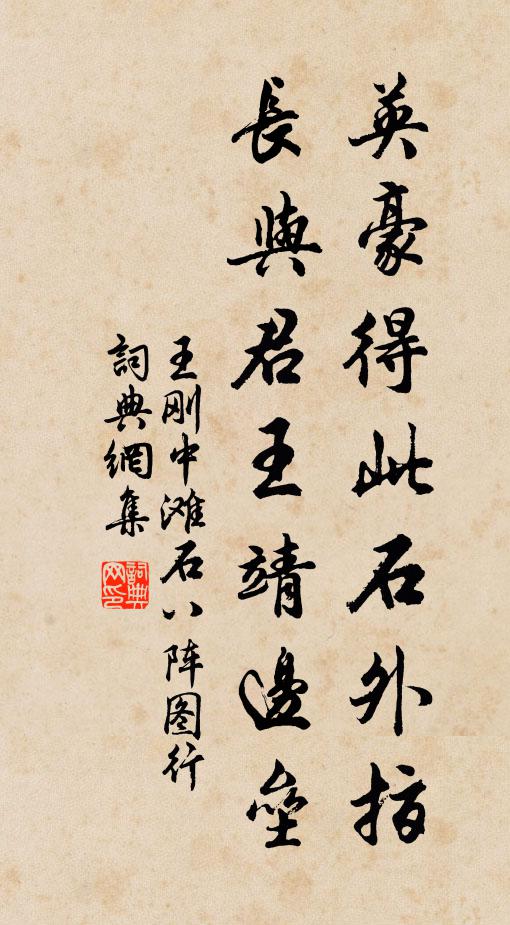 英豪得此石外指
長與君王靖邊壘
王刚中滩石八阵图行
詞典網集
詞典网印